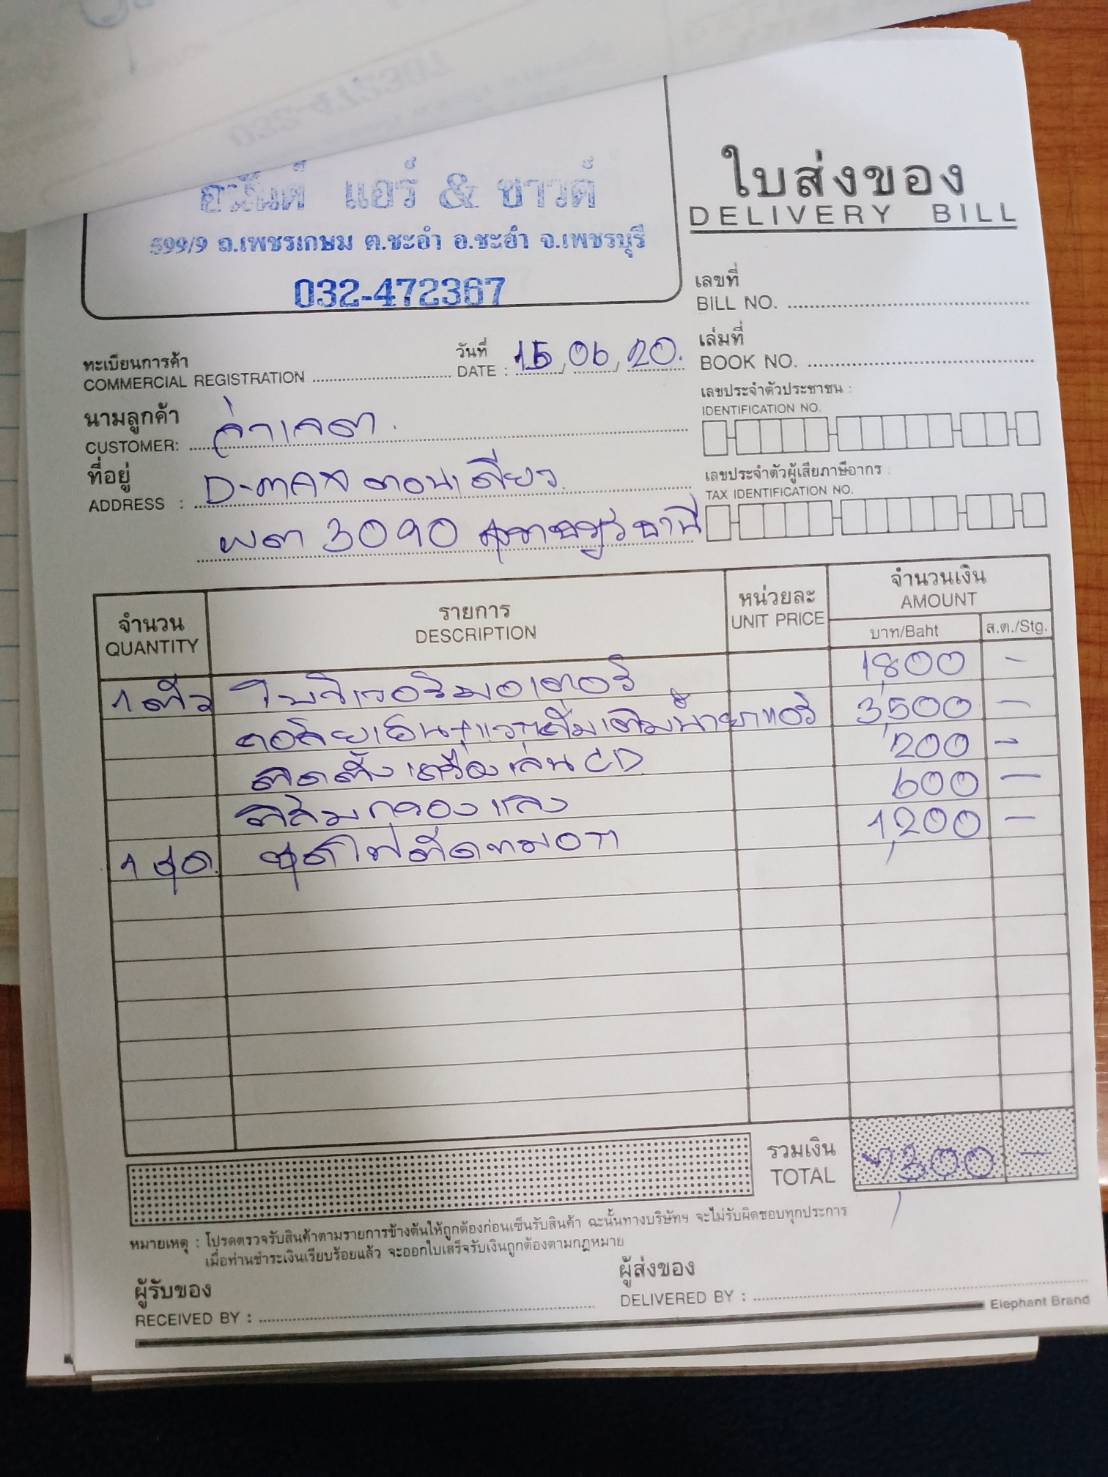 แอร์ & ซาวด์
599/9 ถ.เพชรเกษม ต.ชะอำ อ.ชะอำ จ.เพชรบุรี
032-472367
ใบส่งของ
DELIVERY BILL
เลขที่
BILL NO.
เล่มที่
BOOK NO.
ทะเบียนการค้า
COMMERCIAL REGISTRATION
วันที่
DATE : 15, 06, 20.
เลขประจำตัวประชาชน :
IDENTIFICATION NO.
นามลูกค้า
CUSTOMER:
ที่อยู่
ADDRESS : D-max ตอนเดียว
3090 สุราษฎร์ธานี
เลขประจำตัวผู้เสียภาษีอากร :
TAX IDENTIFICATION NO.
จำนวน
QUANTITY
รายการ
DESCRIPTION
หน่วยละ
UNIT PRICE
จำนวนเงิน
AMOUNT
บาท/Baht
ส.ต./Stg.
1 ตัว 1,800 -
3,500 -
ติดตั้งเครื่องเล่น CD 200 -
ฟิล์มกรองแสง 600 -
1 ชุด ชุดไฟตัดหมอก 1,200 -
รวมเงิน
TOTAL
7,300 -
หมายเหตุ : โปรดตรวจรับสินค้าตามรายการข้างต้นให้ถูกต้องก่อนเซ็นรับสินค้า ฉะนั้นทางบริษัทฯ จะไม่รับผิดชอบทุกประการ
เมื่อท่านชำระเงินเรียบร้อยแล้ว จะออกใบเสร็จรับเงินถูกต้องตามกฎหมาย
ผู้รับของ
RECEIVED BY :
ผู้ส่งของ
DELIVERED BY :
Elephant Brand